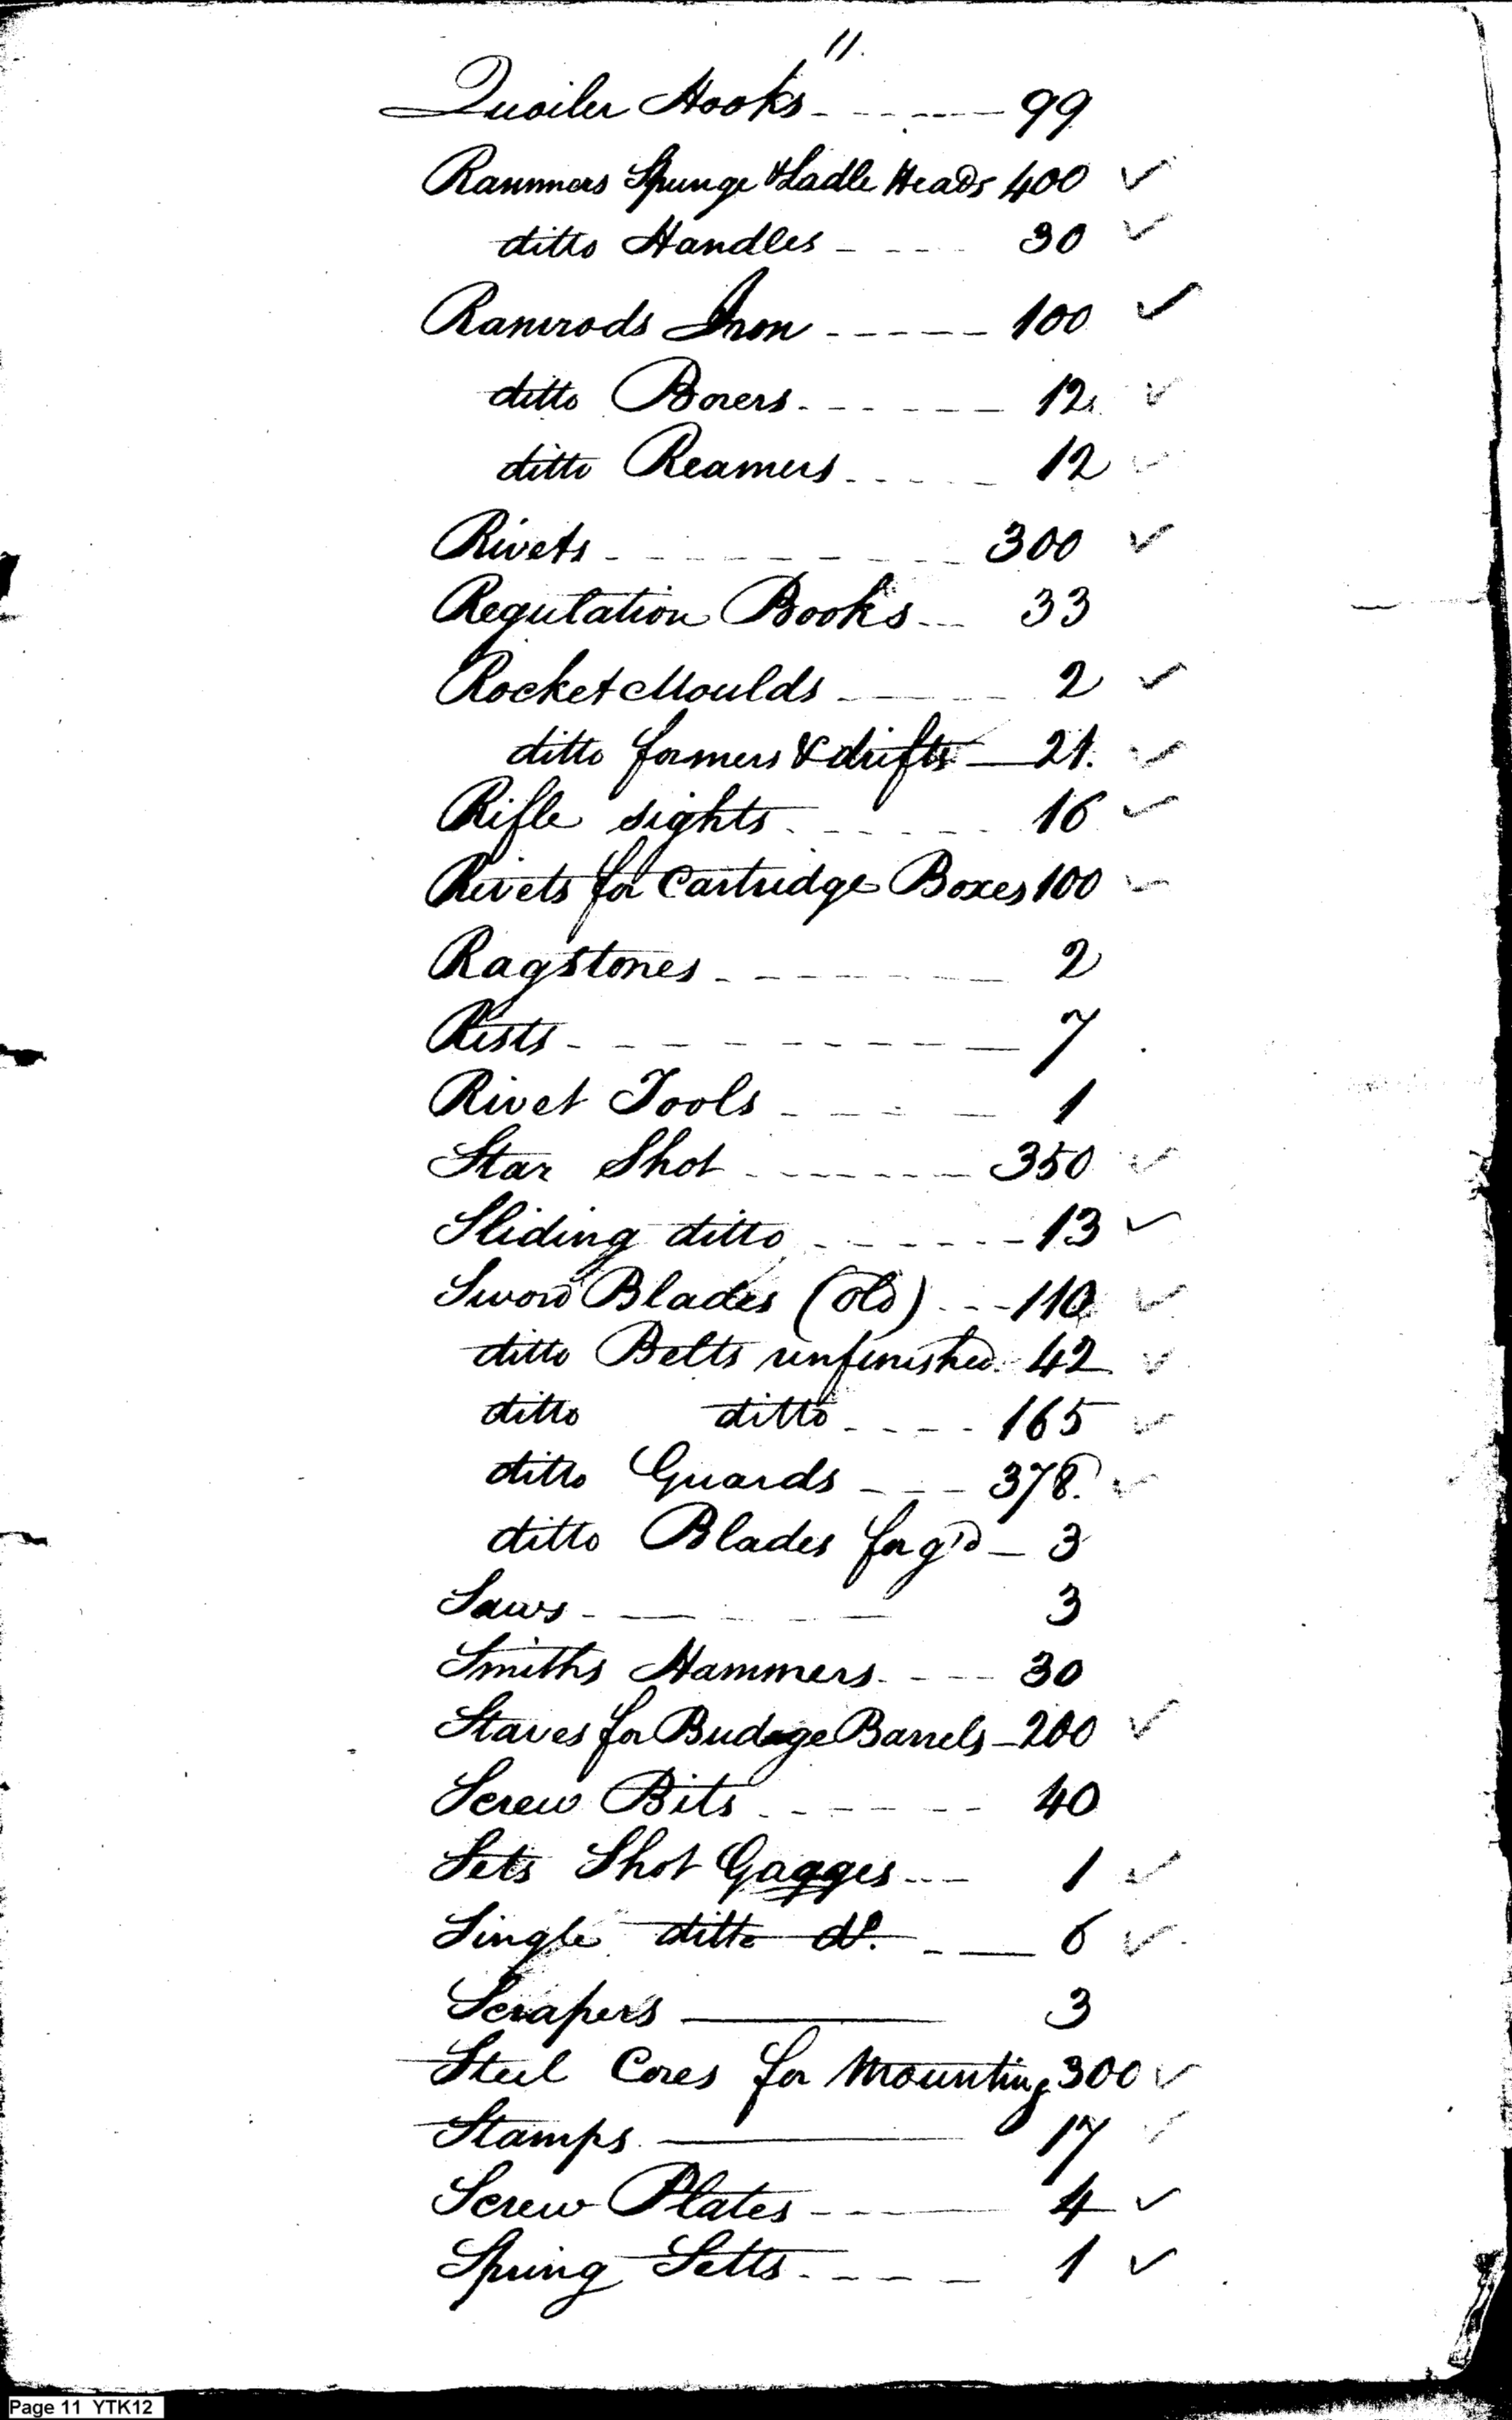 11.
Quoiler Hooks - - - - - 99
Rammers Spunge & Ladle Heads 400 ✓
ditto Handles - - - - 30 ✓
Ramrods Iron - - - - - 100 ✓
ditto Borers - - - - - - 12 ✓
ditto Reamers - - - - - 12 ✓
Rivets - - - - - - - - - 300 ✓
Regulation Books - - - 33
Rocket Moulds - - - - - 2 ✓
ditto formers & drifts — 21. ✓
Rifle sights - - - - - - 16 ✓
Rivets for Cartridge Boxes 100 ✓
Ragstones - - - - - - - 2
Rists - - - - - - - - - — 7
Rivet Tools - - - - — 1
Star Shot - - - - - - - 350 ✓
Sliding ditto - - - - - - 13 ✓
Sword Blades (old) - - - 110 ✓
ditto Belts unfinished - 42 ✓
ditto ditto - - - - 165 ✓
ditto Guards - - - 378. ✓
ditto Blades forg'd — 3
Saws - — - - — 3
Smiths Hammers - - - - 30
Staves for Budge Barrels — 200 ✓
Screw Bits - - - - - - 40
Sets Shot Gagges - - - 1 ✓
Single ditto do. - — 6 ✓
Scrapers ——— 3
Steel Cores for Mounting 300 ✓
Stamps ——— 17 ✓
Screw Plates - - - — 4 ✓
Spring Setts - - - - — 1 ✓
Page 11 YTK12